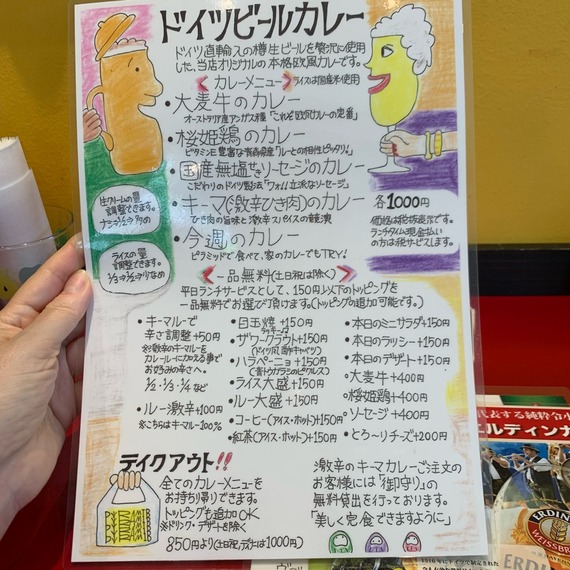 ドイツビールカレー
ドイツ直輸入の樽生ビールを贅沢に使用
した、当店オリジナルの本格欧風カレーです。
カレーメニュー ライスは国産米使用
・大麦牛のカレー
オーストラリア産アンガス種「これぞ欧風カレーの定番」
・桜姫鶏のカレー
ビタミンE豊富な青森県産「ルーとの相性ピッタリ」
・国産無塩せきソーセージのカレー
こだわりのドイツ製法「クオリ立派なソーセージ」
・キーマ(激辛ひき肉)のカレー
ひき肉の旨味と激辛スパイスの競演
・今週のカレー
ピラミッドで食べて、家のカレーでもTRY!
各1000円
価格は税抜表示です。
ランチタイム現金払い
の方は税サービスします。
生クリームの量
調整できます。
ナシ⇔1/2⇔多め
ライスの量
調整できます。
1/3⇔1/2⇔少なめ
一品無料(土日祝は除く)
平日ランチサービスとして、150円以下のトッピングを
一品無料でお選び頂けます。(トッピングの追加可能です。)
・キーマルーで
辛さ調整+50円
※激辛のキーマルーを
カレールーに加える事で
お好みの辛さへ。
1/2・1/3・1/4など
・ルー激辛+100円
※こちらはキーマルー100%
・目玉焼+150円
・ザワークラウト+150円
(ドイツ風酢キャベツ)
・ハラペーニョ+150円
(青トウガラシのピクルス)
・ライス大盛+150円
・ルー大盛+150円
・コーヒー(アイス・ホット)+150円
・紅茶(アイス・ホット)+150円
・本日のミニサラダ+150円
・本日のラッシー+150円
・本日のデザート+150円
・大麦牛+400円
・桜姫鶏+400円
・ソーセージ+400円
・とろ〜りチーズ+200円
テイクアウト!!
全てのカレーメニューを
お持ち帰りできます。
トッピングも追加OK
※ドリンク・デザートを除く
850円より(土日祝、ディナーは1000円)
激辛のキーマカレーご注文の
お客様には「御守り」の
無料貸出を行っております。
「美しく完食できますように」
代表する純粋令
エルディンガ
ERDIN
WEISSBR
ERDI